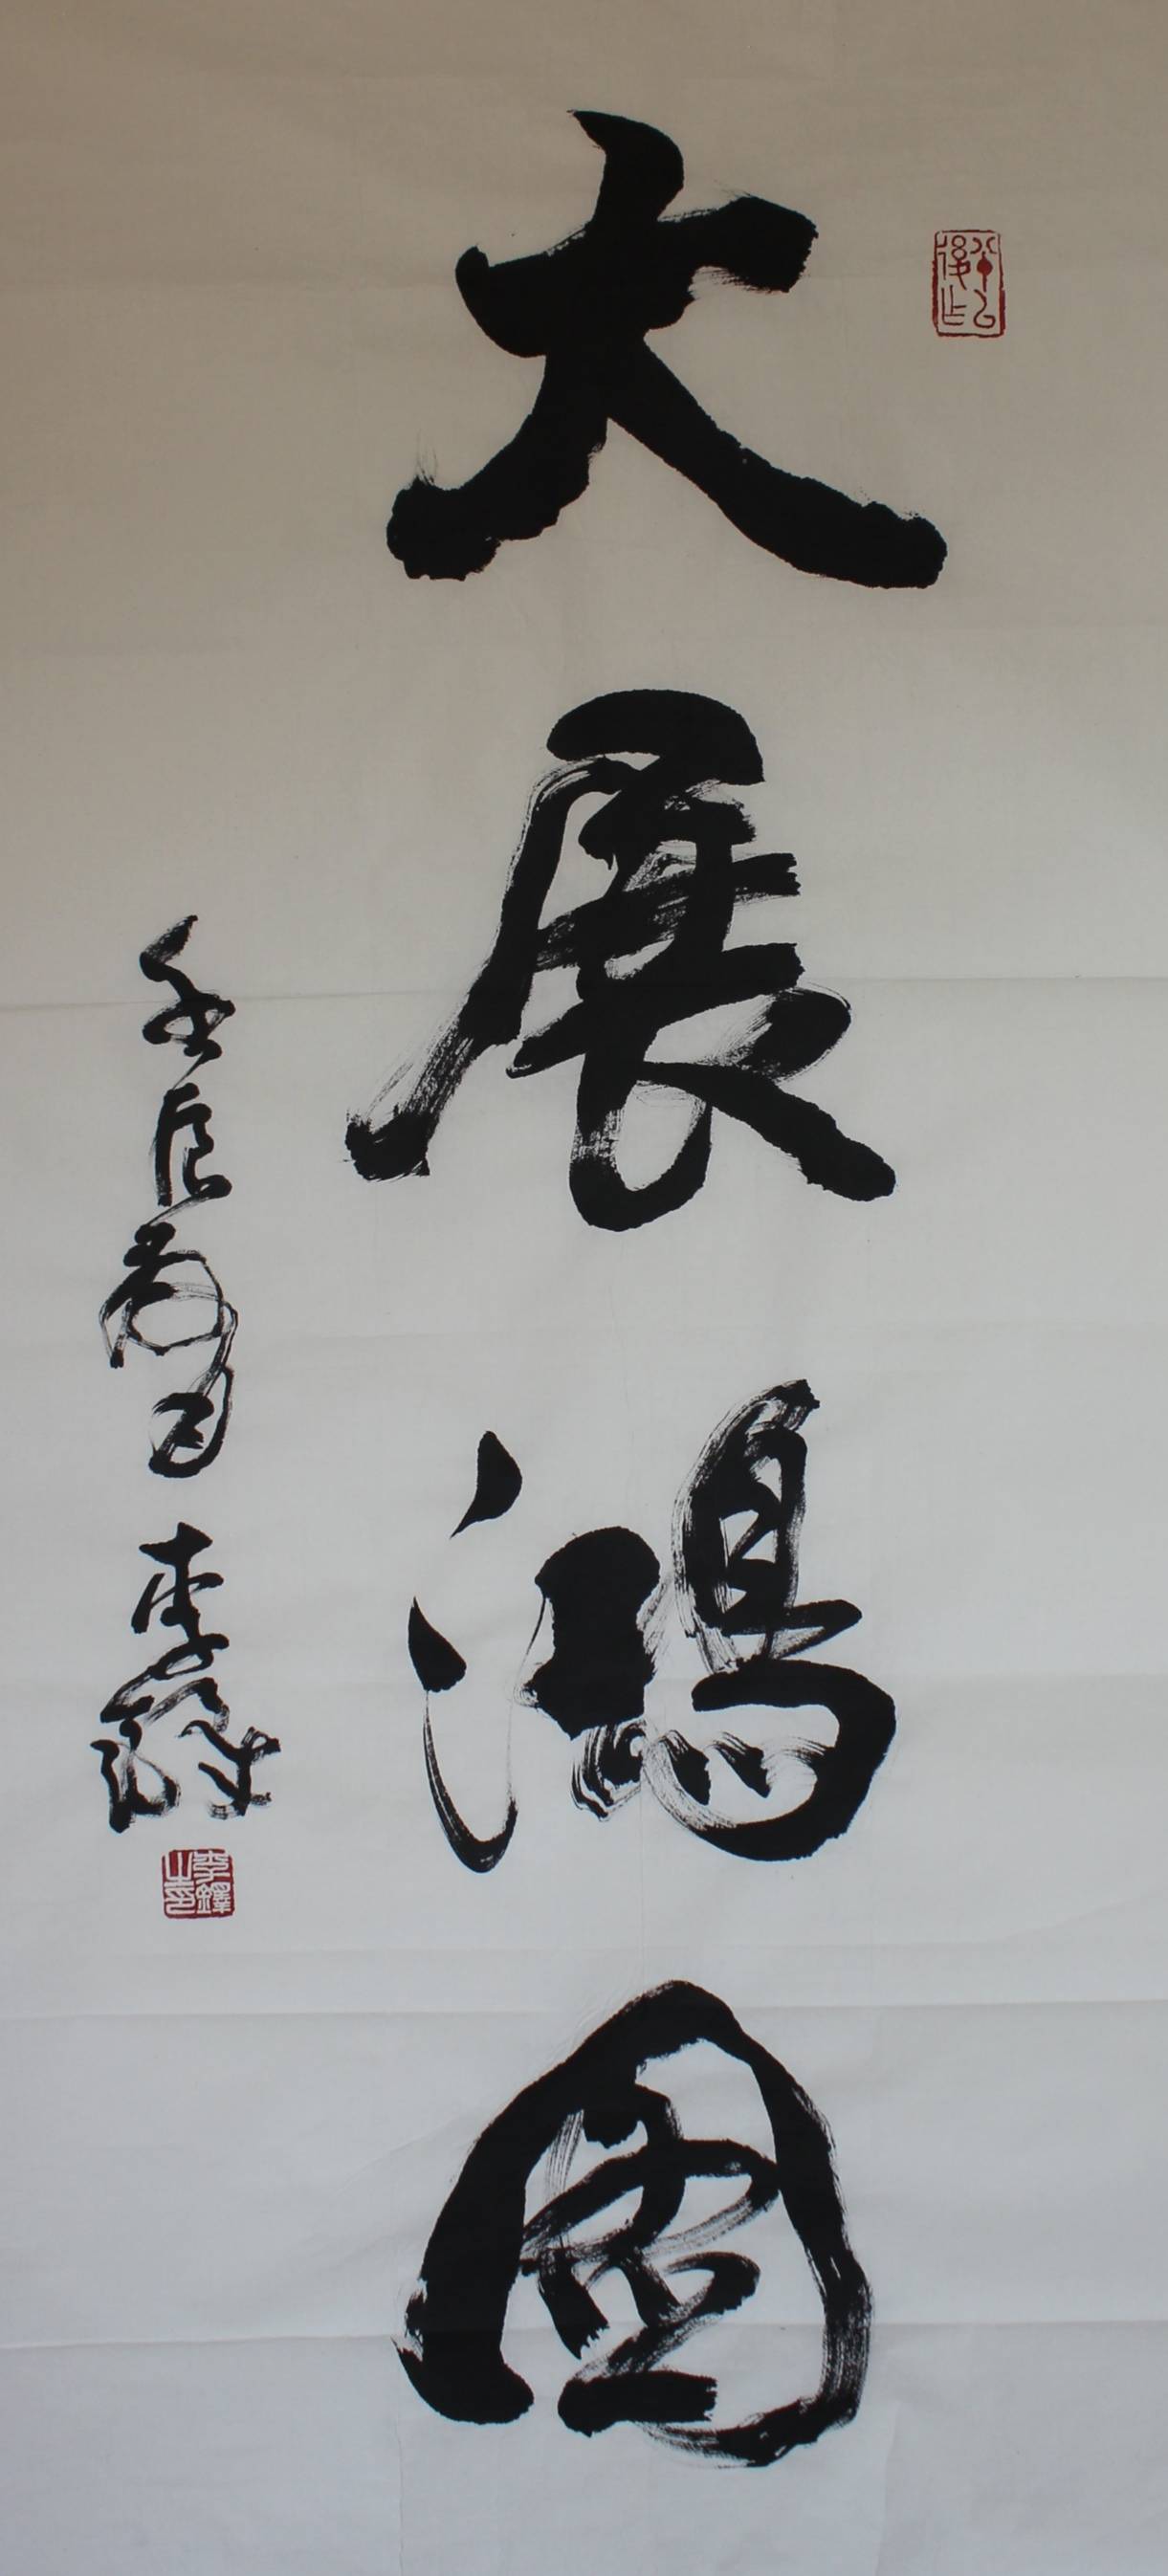 大展鴻圖
壬辰 月 李鐸
李鐸之印